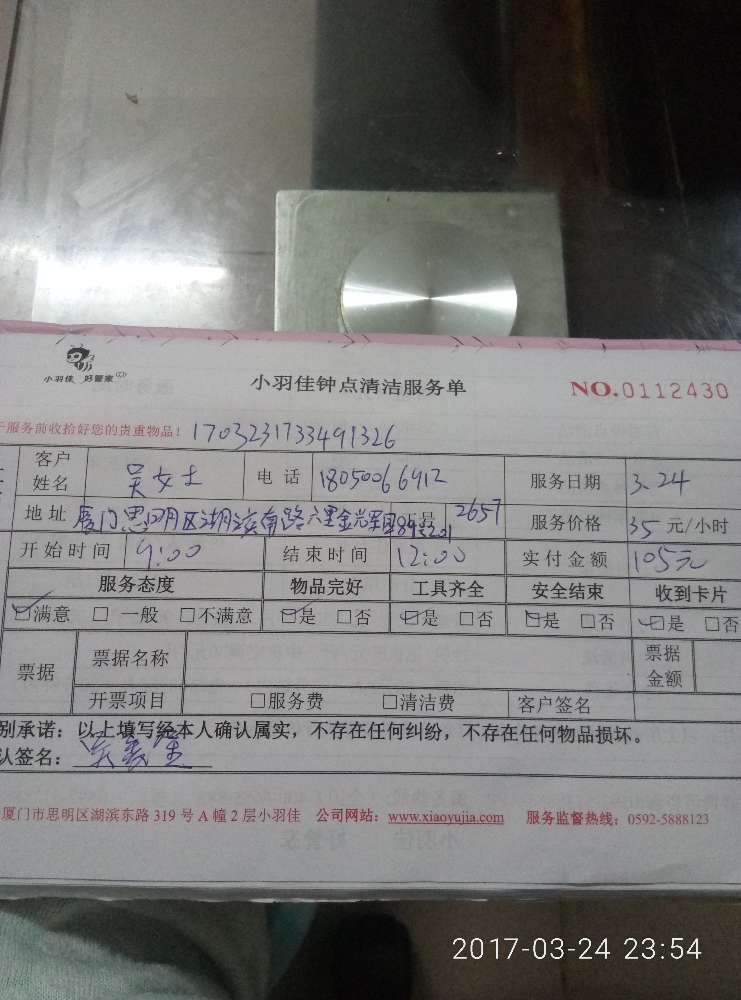 小羽佳 好管家
小羽佳钟点清洁服务单
NO.0112430
服务前收拾好您的贵重物品!
1703231733491326
客户姓名 吴女士 电话 18050066912 服务日期 3.24
地址 厦门思明区湖滨南路六里 2657 服务价格 35 元/小时
开始时间 9:00 结束时间 12:00 实付金额 105元
服务态度 物品完好 工具齐全 安全结束 收到卡片
☑满意 □ 一般 □不满意 ☑是 □否 ☑是 □否 ☑是 □否 ☑是 □否
票据 票据名称 票据金额
开票项目 □服务费 □清洁费 客户签名
别承诺:以上填写经本人确认属实,不存在任何纠纷,不存在任何物品损坏。
认签名:
厦门市思明区湖滨东路 319 号 A 幢 2 层小羽佳 公司网站:www.xiaoyujia.com 服务监督热线:0592-5888123
2017-03-24 23:54